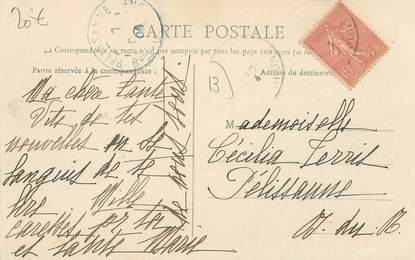 20€
CARTE POSTALE
La Correspondance au recto n'est pas acceptée par tous les pays étrangers
Partie réservée à la correspondance
Adresse du destinataire
B
Ma chère Tante
Vite de tes
nouvelles on se
languis de te
lire Mille
caresses pr toi
et tante Marie
de nous tous
Mademoiselle
Cécilia Terris
Pélissanne
B. du R.
10